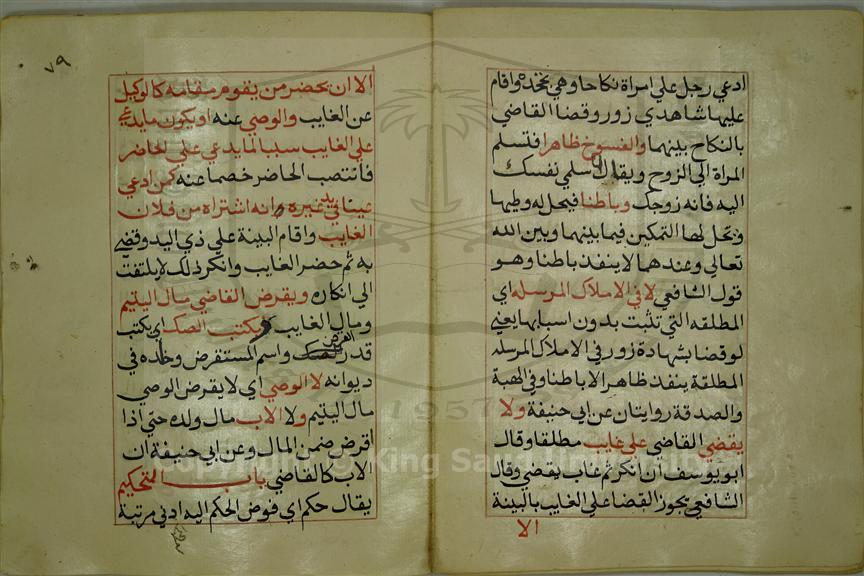 ادعي رجل علي امراة نكاحا وهي تجحده واقام
عليها شاهدي زور وقضا القاضي
بالنكاح بينهما والفسوخ ظاهرا فتسلم
المراة الي الزوج ويقال سلمي نفسك
اليه فانه زوجك وباطنا فيحل له وطيها
ويحل لها التمكين فيما بينهما وبين الله
تعالي وعندهما لا ينفذ باطنا وهو
قول الشافعي لا في الاملاك المرسله اي
المطلقه التي تثبت بدون اسبابها يعني
لو قضا بشهادة زور في الاملاك المرسله
المطلقة ينفذ ظاهرا لا باطنا وفي الهبة
والصدقة روايتان عن ابي حنيفة ولا
يقضي القاضي علي غايب مطلقا وقال
ابو يوسف ان انكر ثم غاب يقضي وقال
الشافعي يجوز القضا علي الغايب بالبينة
الا
٧٩
الا ان يحضر من يقوم مقامه كالوكيل
عن الغايب والوصي عنه او يكون ما يدعي
علي الغايب سببا لما يدعي علي الحاضر
فانتصب الحاضر خصما عنه كمن ادعي
عينا في يد غيره وانه اشتراه من فلان
الغايب واقام البينة علي ذي اليد وقضي
به ثم حضر الغايب وانكر ذلك لا يلتفت
الي انكاره ويقرض القاضي مال اليتيم
ومال الغايب ويكتب الصك اي يكتب
قدر القرض واسم المستقرض وخلده في
ديوانه لا الوصي اي لا يقرض الوصي
مال اليتيم ولا الاب مال ولده حتي اذا
اقرض ضمن المال وعن ابي حنيفة ان
الاب كالقاضي باب التحكيم
يقال حكم اي فوض الحكم اليه ادني مرتبة
1957
King Saud University